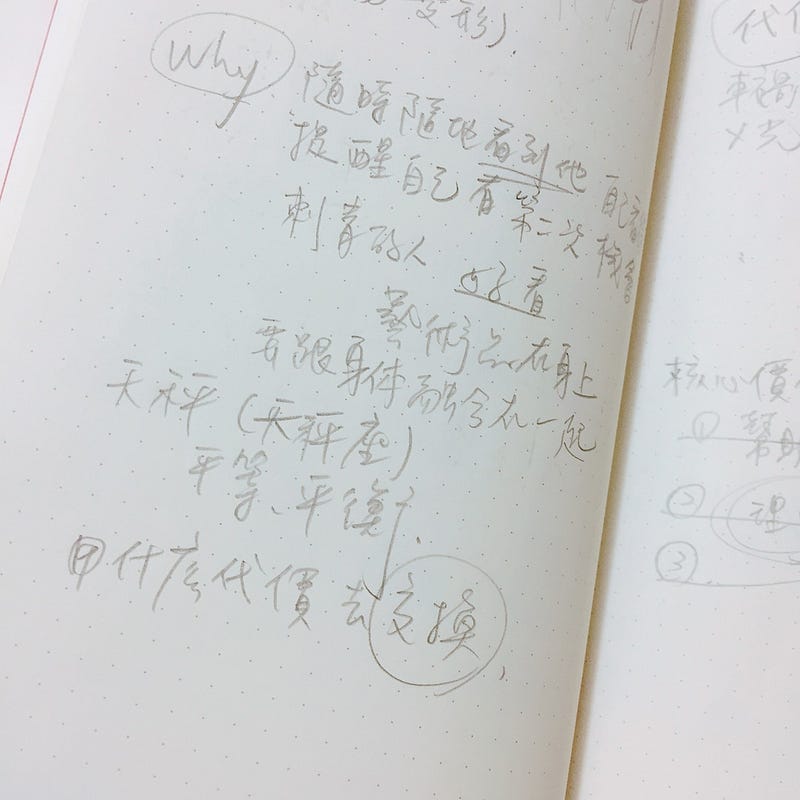 變形)
Why
隨時隨地看到他
提醒自己有第二次
刺青的人 好看
藝術品在身上
要跟身体融合在一起
天秤(天秤座)
平等、平衡
用什麼代價去交換
代
核心價
①
②
③